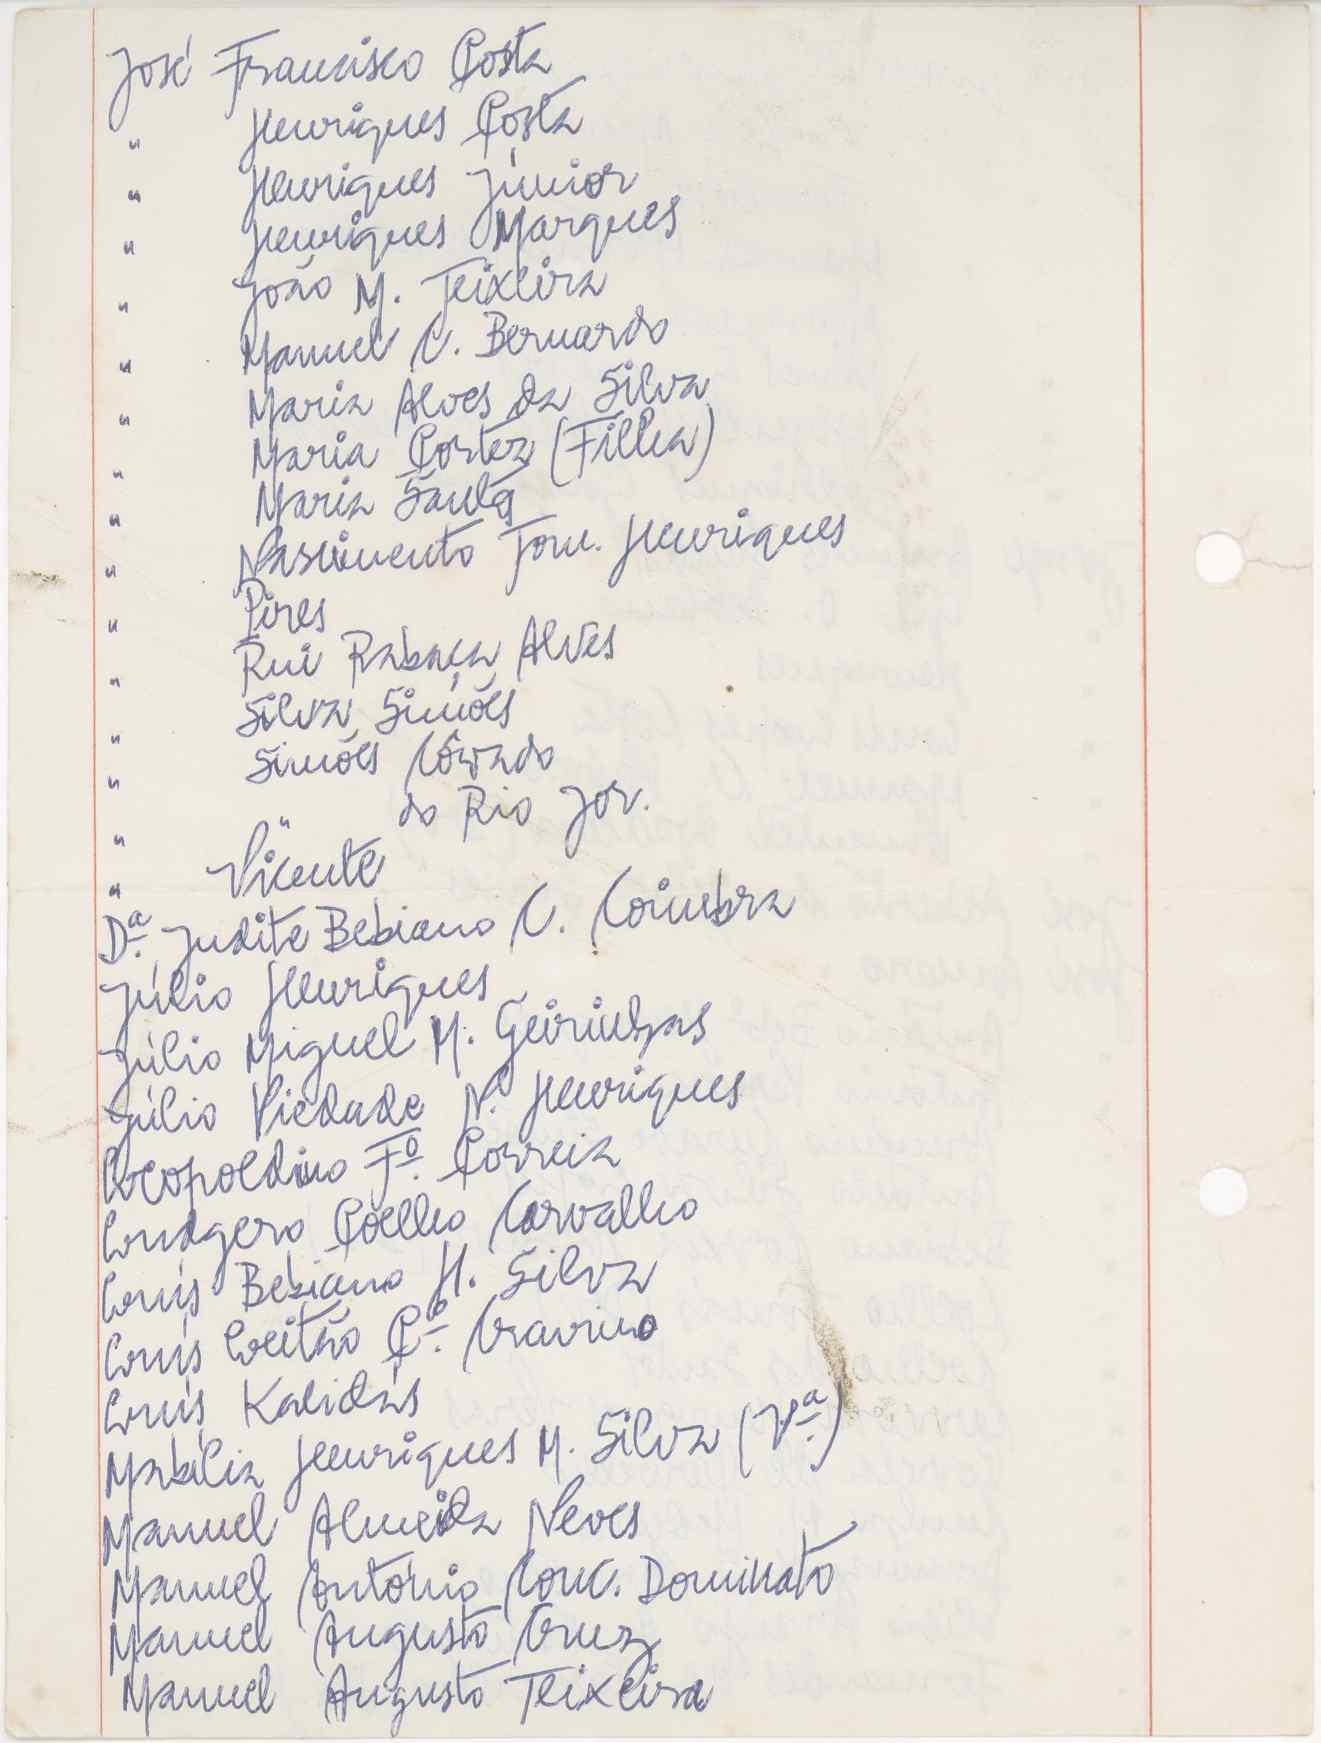 José Francisco Costa
" Henriques Costa
" Henriques Júnior
" Henriques Marques
" João M. Teixeira
" Manuel C. Bernardo
" Maria Alves da Silva
" Maria Costa (Filha)
" Maria Santos
" Nascimento Tom. Henriques
" Pires
" Rui Rabaça Alves
" Silva Simões
" Simões Côrado
" " do Rio Jor.
" Vicente
Dª. Judite Bebiano C. Coimbra
Júlio Henriques
Júlio Miguel M. Geirinhas
Júlio Piedade N. Henriques
Leopoldino Fº. Correia
Ludgero Coelho Carvalho
Luís Bebiano H. Silva
Luís Leitão Cº. Gravino
Luís Kalidás
Mabília Henriques M. Silva (Vª.)
Manuel Almeida Neves
Manuel António Conc. Domikato
Manuel Augusto Cruz
Manuel Augusto Teixeira